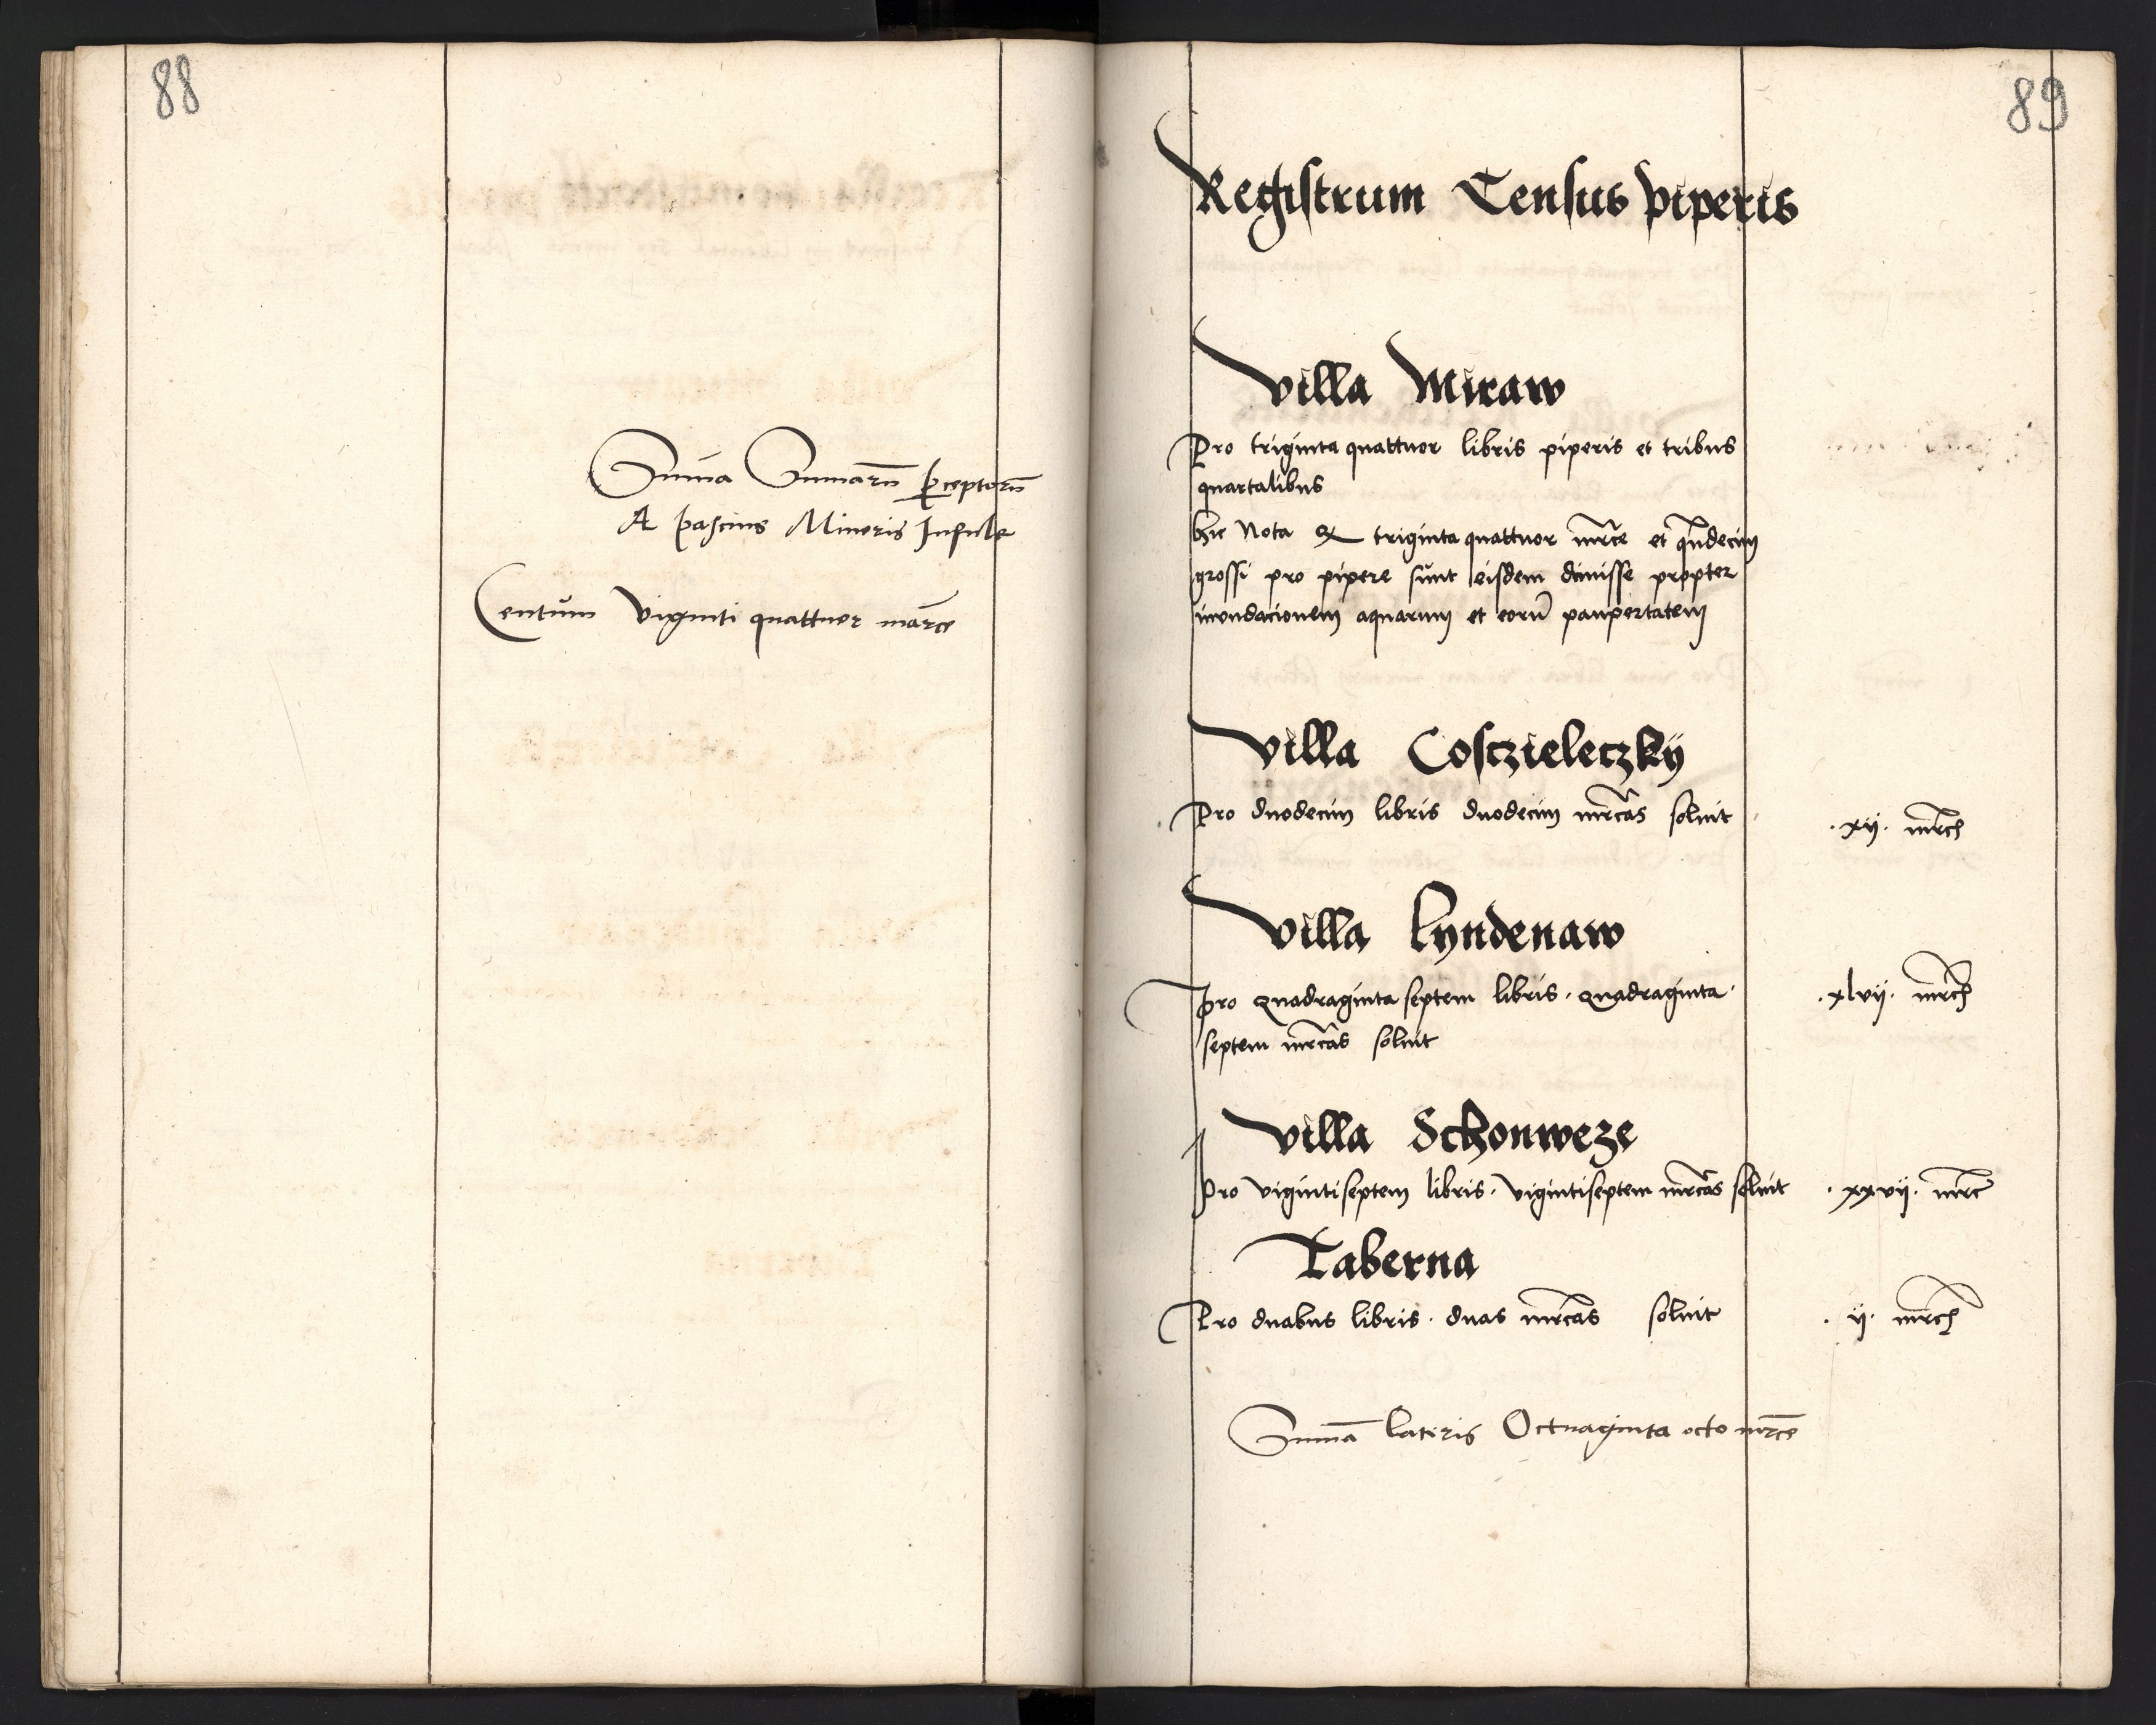 88
Suma Sumaru perceptoru
A pascuis Minoris Insule
Centum viginti quattuor marce
89
Registrum Census piperis
villa Miraw
Pro triginta quattuor libris piperis et tribus
quartalibus
hic Nota triginta quattuor mrce et qndecim
grossi pro pipere sunt eisdem dimisse propter
inondacionem aquarum et eoru paupertatem
villa Cosczieleczky
Pro duodecim libris duodecim mrcas soluit .xij. mrc
villa Lyndenaw
Pro quadraginta septem libris . quadraginta .xlvij. mrc
septem mrcas soluit
villa Schonweze
Pro vigintiseptem libris . vigintiseptem mrcas soluit .xxvij. mrc
Taberna
Pro duabus libris . duas mrcas soluit . ij . mrc
Suma lateris Octuaginta octo mrce